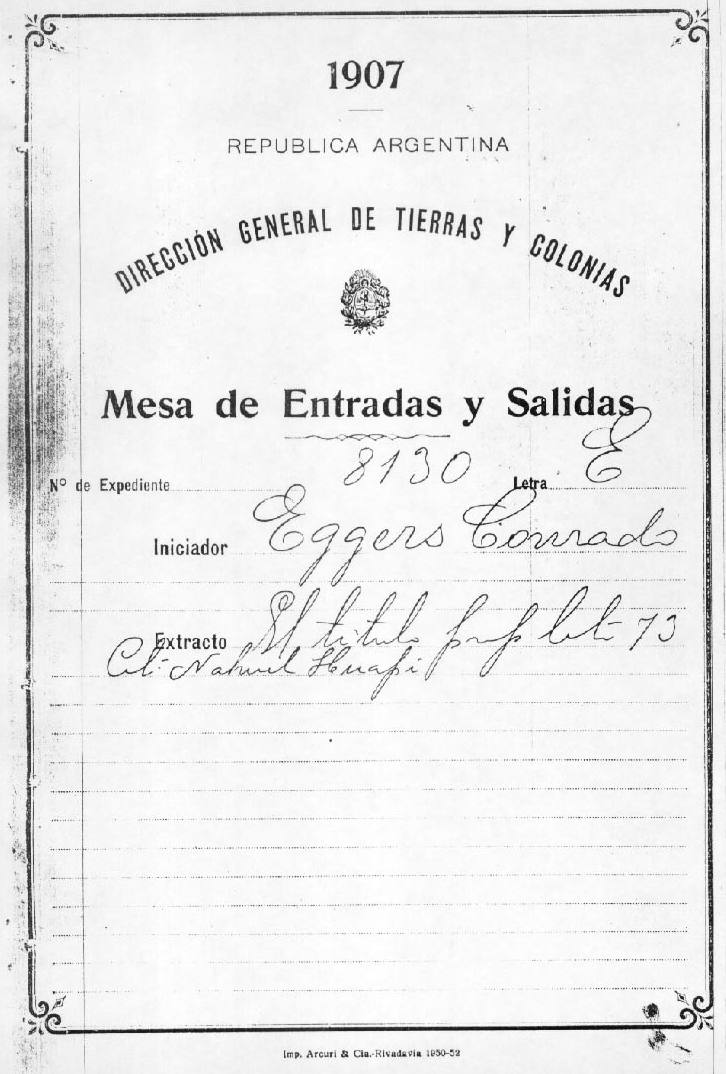 1907
REPUBLICA ARGENTINA
DIRECCIÓN GENERAL DE TIERRAS Y COLONIAS
Mesa de Entradas y Salidas
Nº de Expediente 8130 Letra E
Iniciador Eggers Conrado
Extracto titulo prop lote 73
Col: Nahuel Huapi
Imp. Arcuri & Cia.-Rivadavia 1950-52